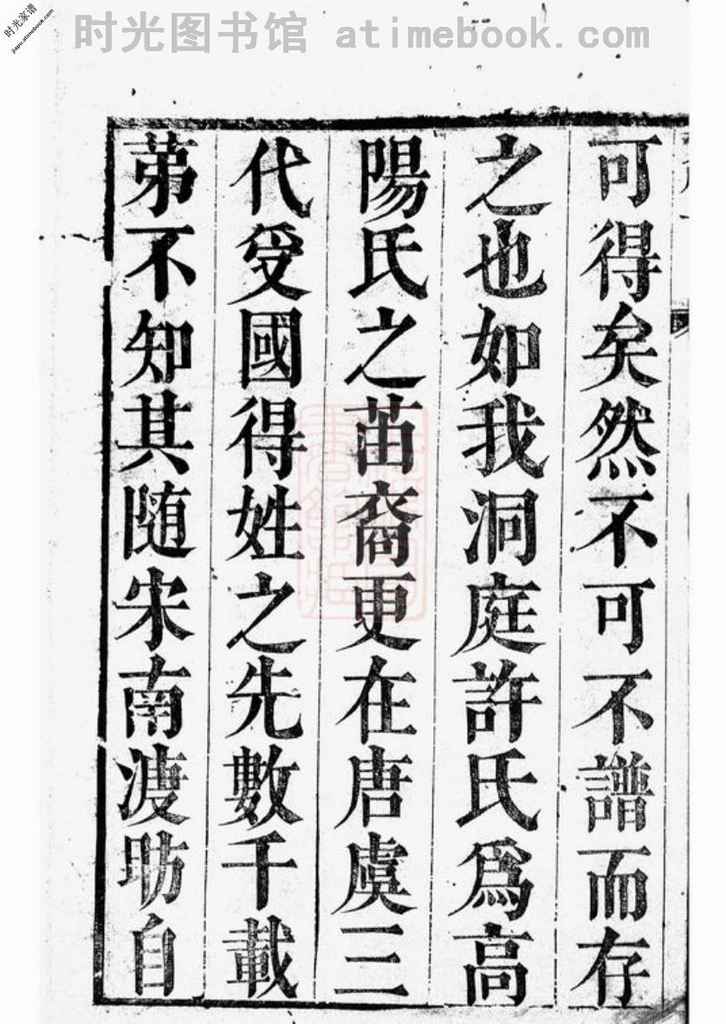 时光图书馆 atimebook.com
时光家谱
jiapu.atimebook.com
可得矣然不可不譜而存
之也如我洞庭許氏爲高
陽氏之苗裔更在唐虞三
代受國得姓之先數千載
苐不知其随宋南渡昉自